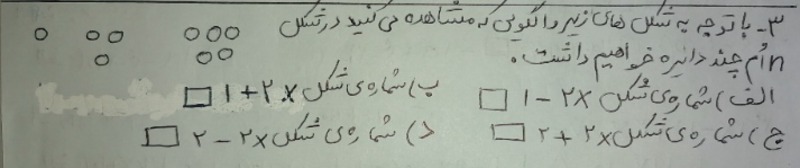 ۳- با توجه به شکل های زیر و الگویی که مشاهده می کنید در شکل
nاُم چند دایره خواهیم داشت.
الف) شماره ی شکل ×۲ - ۱ ب) شماره ی شکل ×۲ + ۱
ج) شماره ی شکل ×۲ + ۲ د) شماره ی شکل ×۲ - ۲